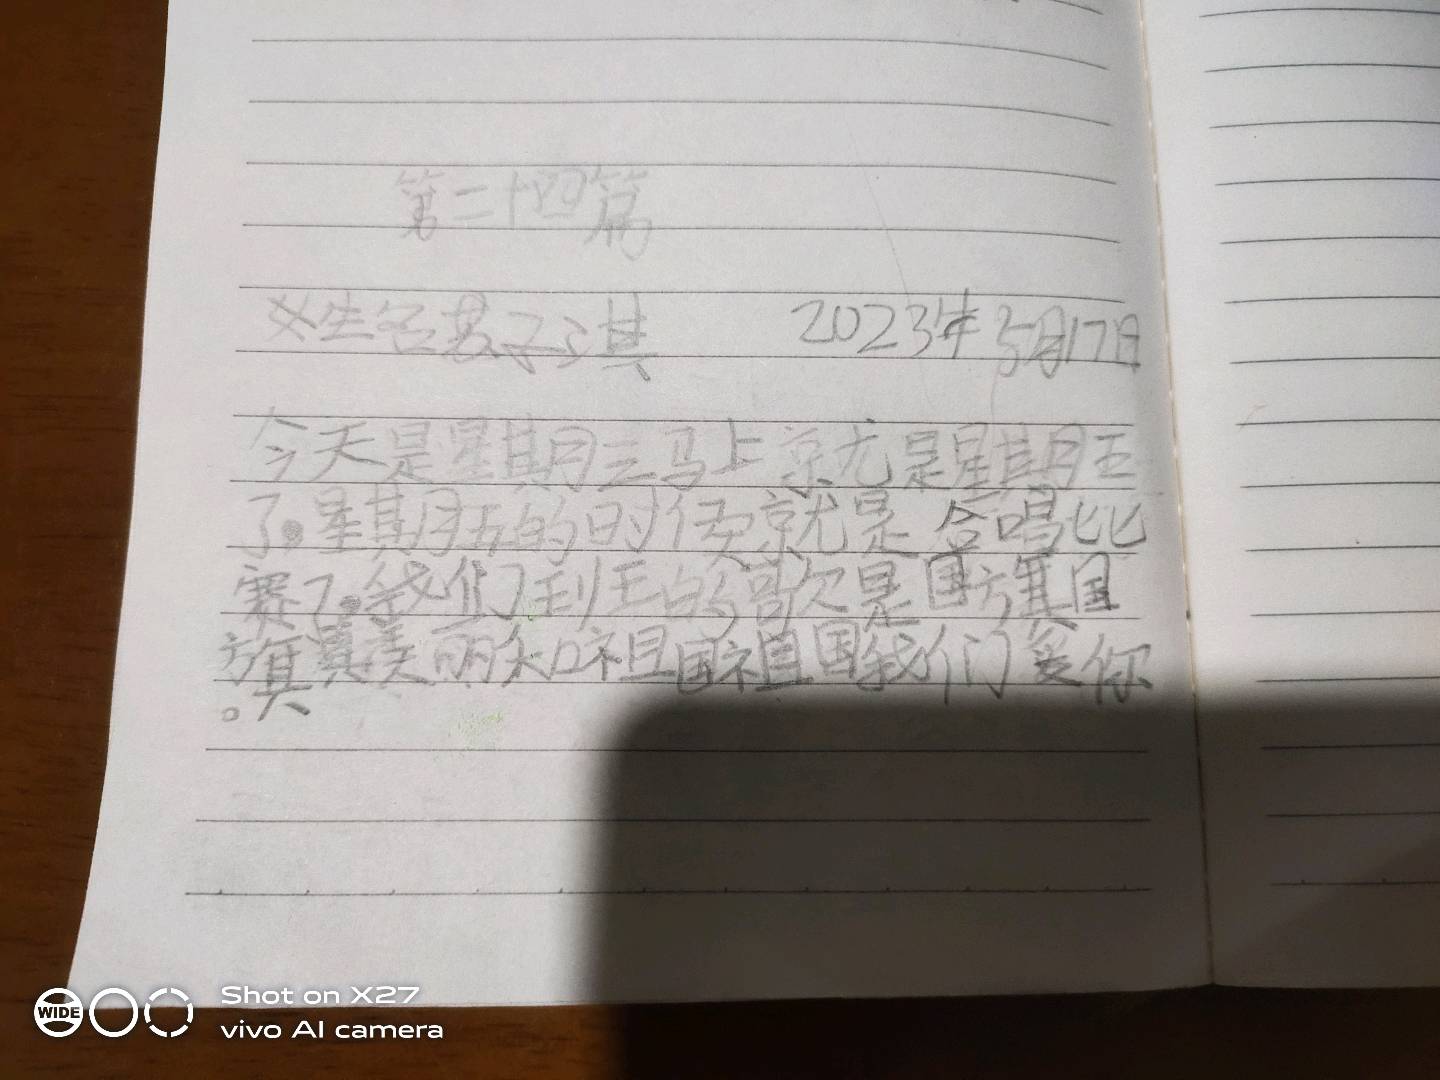 第二十四篇
姓名苏子淇 2023年5月17日
今天是星期三马上就是星期五
了。星期五的时候就是合唱比
赛了。我们到王的歌是国旗国
旗真美丽和祖国祖国我们爱你
。
WIDE
Shot on X27
vivo AI camera